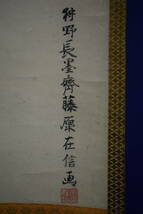 狩野長墨齋藤原在信画